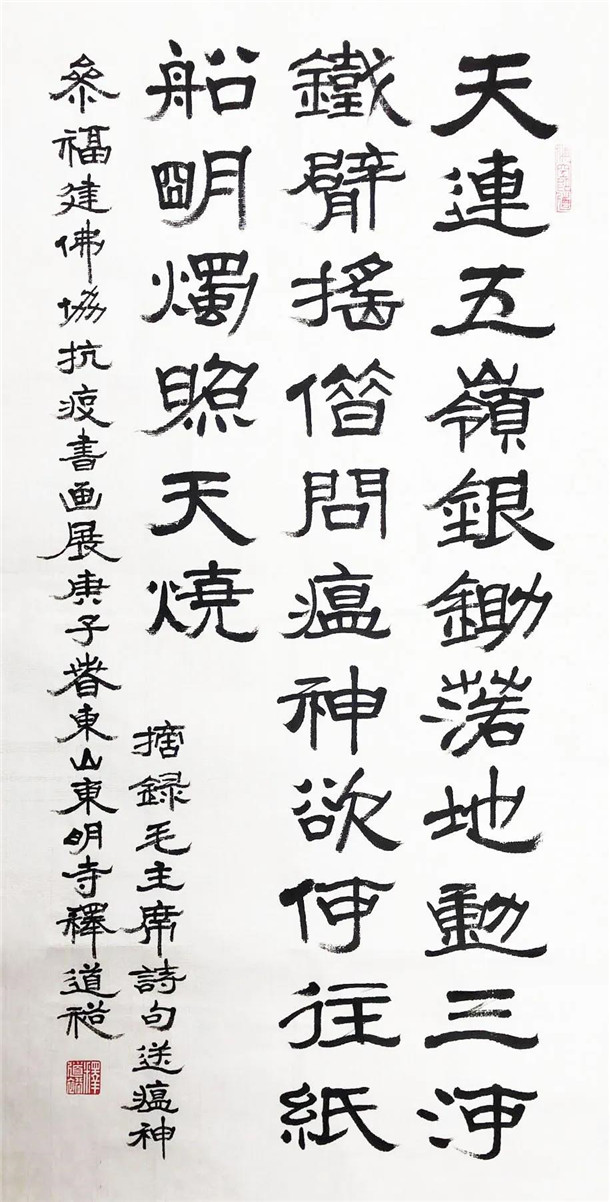 天連五嶺銀鋤落地動三河
鐵臂搖借問瘟神欲何往紙
船明燭照天燒
摘録毛主席詩句送瘟神
參福建佛協抗疫書画展庚子春東山東明寺釋道裕